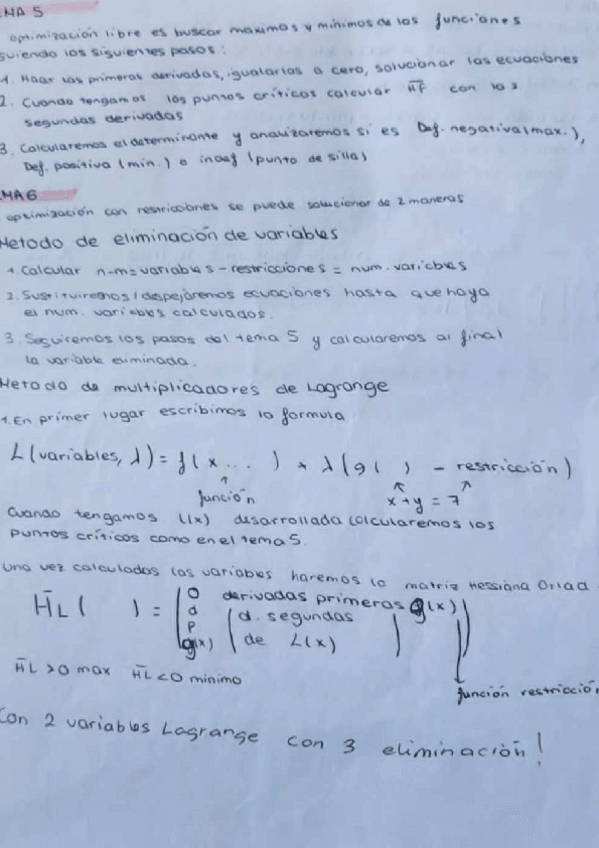 MA 5
optimización libre es buscar maximos y mínimos de las funciones
guiendo los siguientes pasos:
1. Hacer las primeras derivadas, igualarlas a cero, solucionar las ecuaciones
2. Cuando tengamos los puntos críticos calcular H̅f con las
segundas derivadas
3. Calcularemos el determinante y analizaremos si es Def. negativa (max.),
Def. positiva (min.) o indef (punto de silla)
MA 6
optimización con restricciones se puede solucionar de 2 maneras
Metodo de eliminación de variables
1. Calcular n-m = variables - restricciones = num. variables
2. Sustituiremos / despejaremos ecuaciones hasta que haya
el num. variables calculados.
3. Seguiremos los pasos del tema 5 y calcularemos al final
la variable eliminada.
Metodo de multiplicadores de Lagrange
1. En primer lugar escribimos la formula
L(variables, λ) = f(x...) + λ(g( ) - restricción)
función x+y = 7
Cuando tengamos L(x) desarrollada calcularemos los
puntos críticos como en el tema 5.
una vez calculadas las variables haremos la matriz Hessiana Orlad
H̅L ( ) = 0 derivadas primeras g(x)
d d. segundas
p de L(x)
g(x)
H̅L >0 max H̅L <0 mínimo
función restricción
Con 2 variables Lagrange con 3 eliminación!